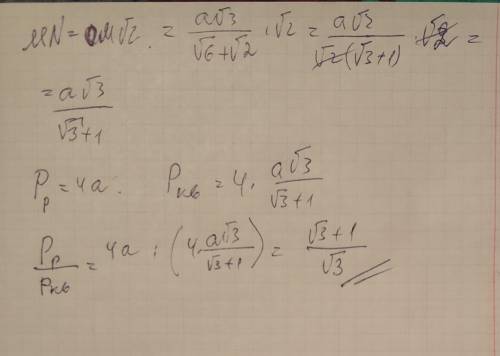 MN = OM√2. = a√3/(√6+√2) · √2 = a√2/(√2(√3+1)) · √2 =
= a√3/(√3+1)
Pр = 4a. Pкв = 4 · a√3/(√3+1)
Pр/Pкв = 4a : (4 · a√3/(√3+1)) = (√3+1)/√3